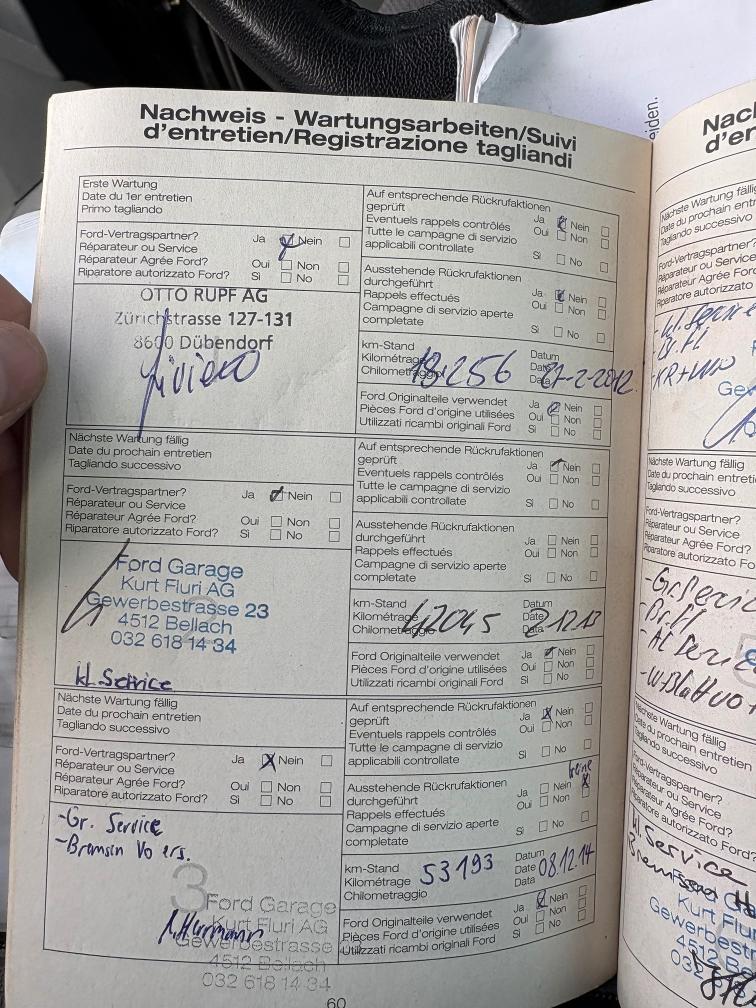 Nachweis - Wartungsarbeiten/Suivi
d'entretien/Registrazione tagliandi
Erste Wartung
Date du 1er entretien
Primo tagliando
Ford-Vertragspartner? Ja Nein
Réparateur ou Service
Réparateur Agrée Ford? Oui Non
Riparatore autorizzato Ford? Sì No
OTTO RUPF AG
Zürichstrasse 127-131
8600 Dübendorf
Auf entsprechende Rückrufaktionen
geprüft Ja Nein
Eventuels rappels contrôlés Oui Non
Tutte le campagne di servizio
applicabili controllate Sì No
Ausstehende Rückrufaktionen
durchgeführt Ja Nein
Rappels effectués Oui Non
Campagne di servizio aperte
completate Sì No
km-Stand Datum
Kilométrage 18256 Date 21-2-2012
Chilometraggio Data
Ford Originalteile verwendet Ja Nein
Pièces Ford d'origine utilisées Oui Non
Utilizzati ricambi originali Ford Sì No
Nächste Wartung fällig
Date du prochain entretien
Tagliando successivo
Ford-Vertragspartner? Ja Nein
Réparateur ou Service
Réparateur Agrée Ford? Oui Non
Riparatore autorizzato Ford? Sì No
2
Ford Garage
Kurt Fluri AG
Gewerbestrasse 23
4512 Bellach
032 618 14 34
kl. Service
Auf entsprechende Rückrufaktionen
geprüft Ja Nein
Eventuels rappels contrôlés Oui Non
Tutte le campagne di servizio
applicabili controllate Sì No
Ausstehende Rückrufaktionen
durchgeführt Ja Nein
Rappels effectués Oui Non
Campagne di servizio aperte
completate Sì No
km-Stand Datum
Kilométrage 42045 Date 2 12 13
Chilometraggio Data
Ford Originalteile verwendet Ja Nein
Pièces Ford d'origine utilisées Oui Non
Utilizzati ricambi originali Ford Sì No
Nächste Wartung fällig
Date du prochain entretien
Tagliando successivo
Ford-Vertragspartner? Ja Nein
Réparateur ou Service
Réparateur Agrée Ford? Oui Non
Riparatore autorizzato Ford? Sì No
-Gr. Service
-Bremsen Vo ers.
3
Ford Garage
Kurt Fluri AG
Gewerbestrasse
4512 Bellach
032 618 14 34
Auf entsprechende Rückrufaktionen
geprüft Ja Nein
Eventuels rappels contrôlés Oui Non
Tutte le campagne di servizio
applicabili controllate Sì No
keine
Ausstehende Rückrufaktionen
durchgeführt Ja Nein
Rappels effectués Oui Non
Campagne di servizio aperte
completate Sì No
km-Stand Datum
Kilométrage 53193 Date 08.12.14
Chilometraggio Data
Ford Originalteile verwendet Ja Nein
Pièces Ford d'origine utilisées Oui Non
Utilizzati ricambi originali Ford Sì No
60
eiden.
Nächste Wartung fällig
Date du prochain entretien
Tagliando successivo
Ford-Vertragspartner?
Réparateur ou Service
Réparateur Agrée Ford?
Riparatore autorizzato
-kl. Service
-Br.Fl
Nächste Wartung fällig
Date du prochain
Tagliando successivo
Ford-Vertragspartner?
Réparateur ou Service
Réparateur Agrée Ford
Riparatore autorizzato Fo
-Gr. Servic
-Br.Fl
Nächste Wartung fällig
Date du prochain entretien
Tagliando successivo
Ford-Vertragspartner?
Réparateur ou Service
Réparateur Agrée Ford?
Riparatore autorizzato Ford?
kl. Service
Kurt Fluri
Gewerbestra
4512 B